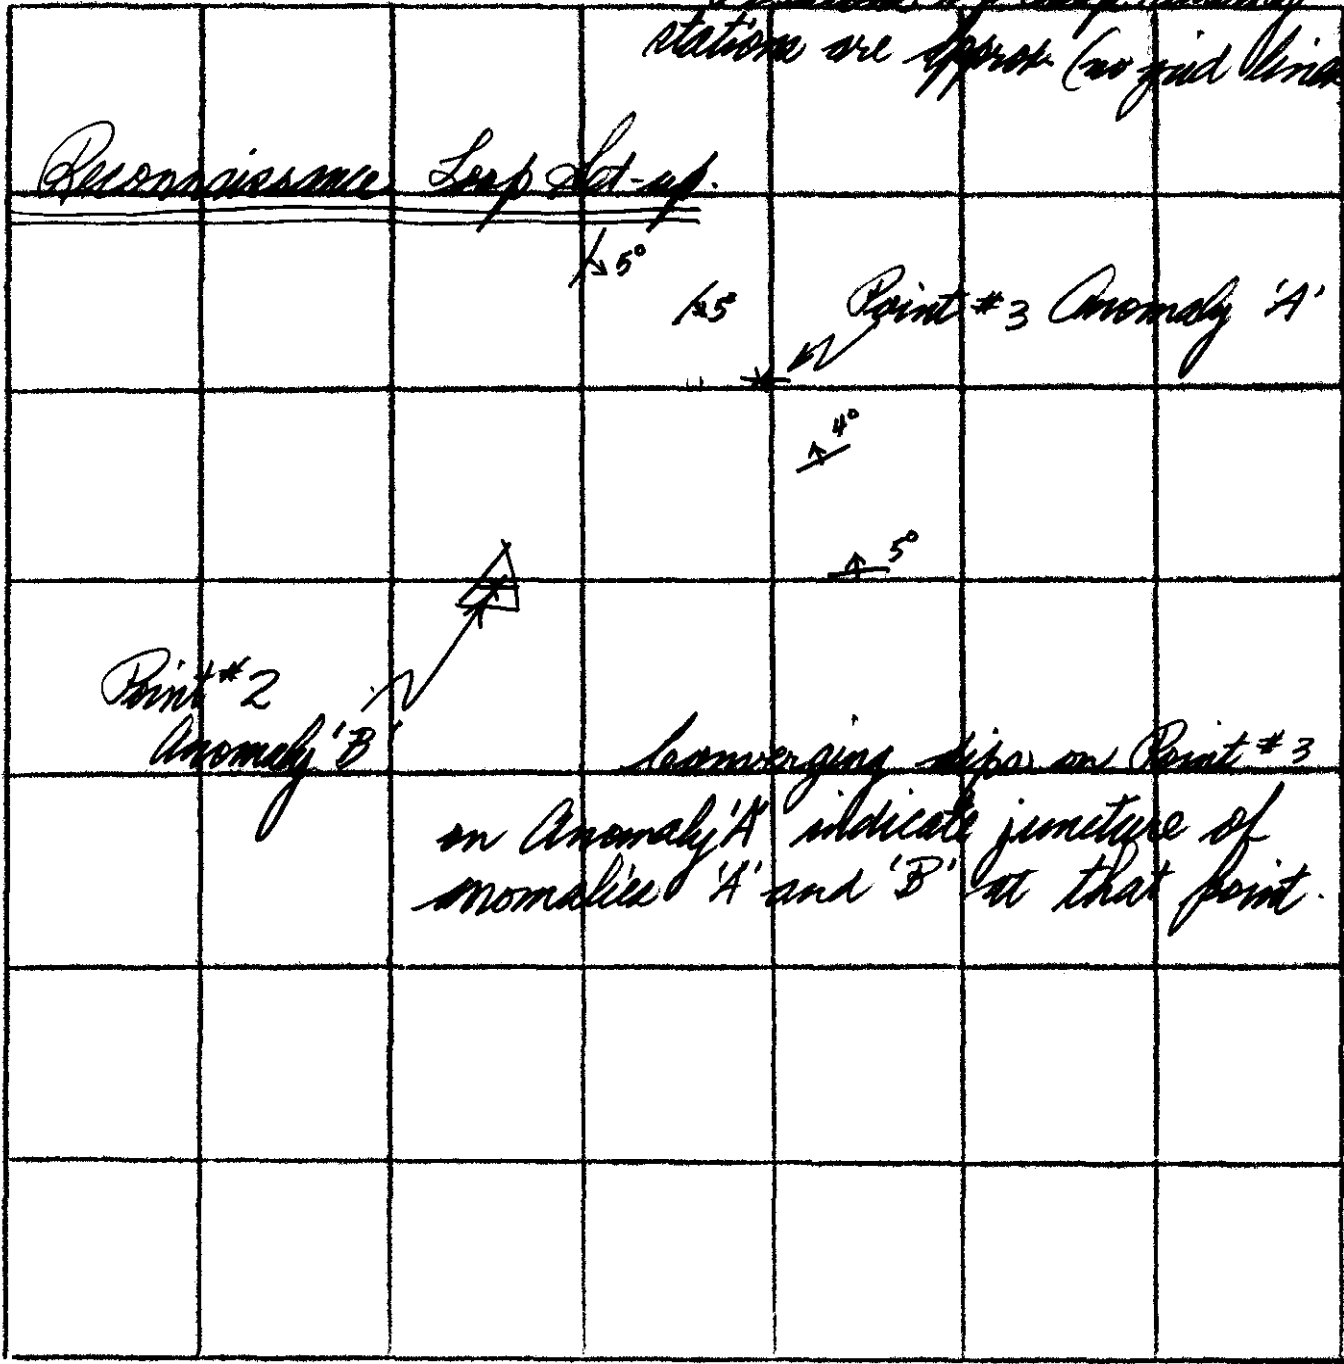 stations are approx (no grid lines
Reconnaissance Loop Set-up.
5°
5°
Point #3 Anomaly 'A'
4°
5°
Point #2
Anomaly 'B'
Converging dips on Point #3
on Anomaly 'A' indicate juncture of
anomalies 'A' and 'B' at that point.